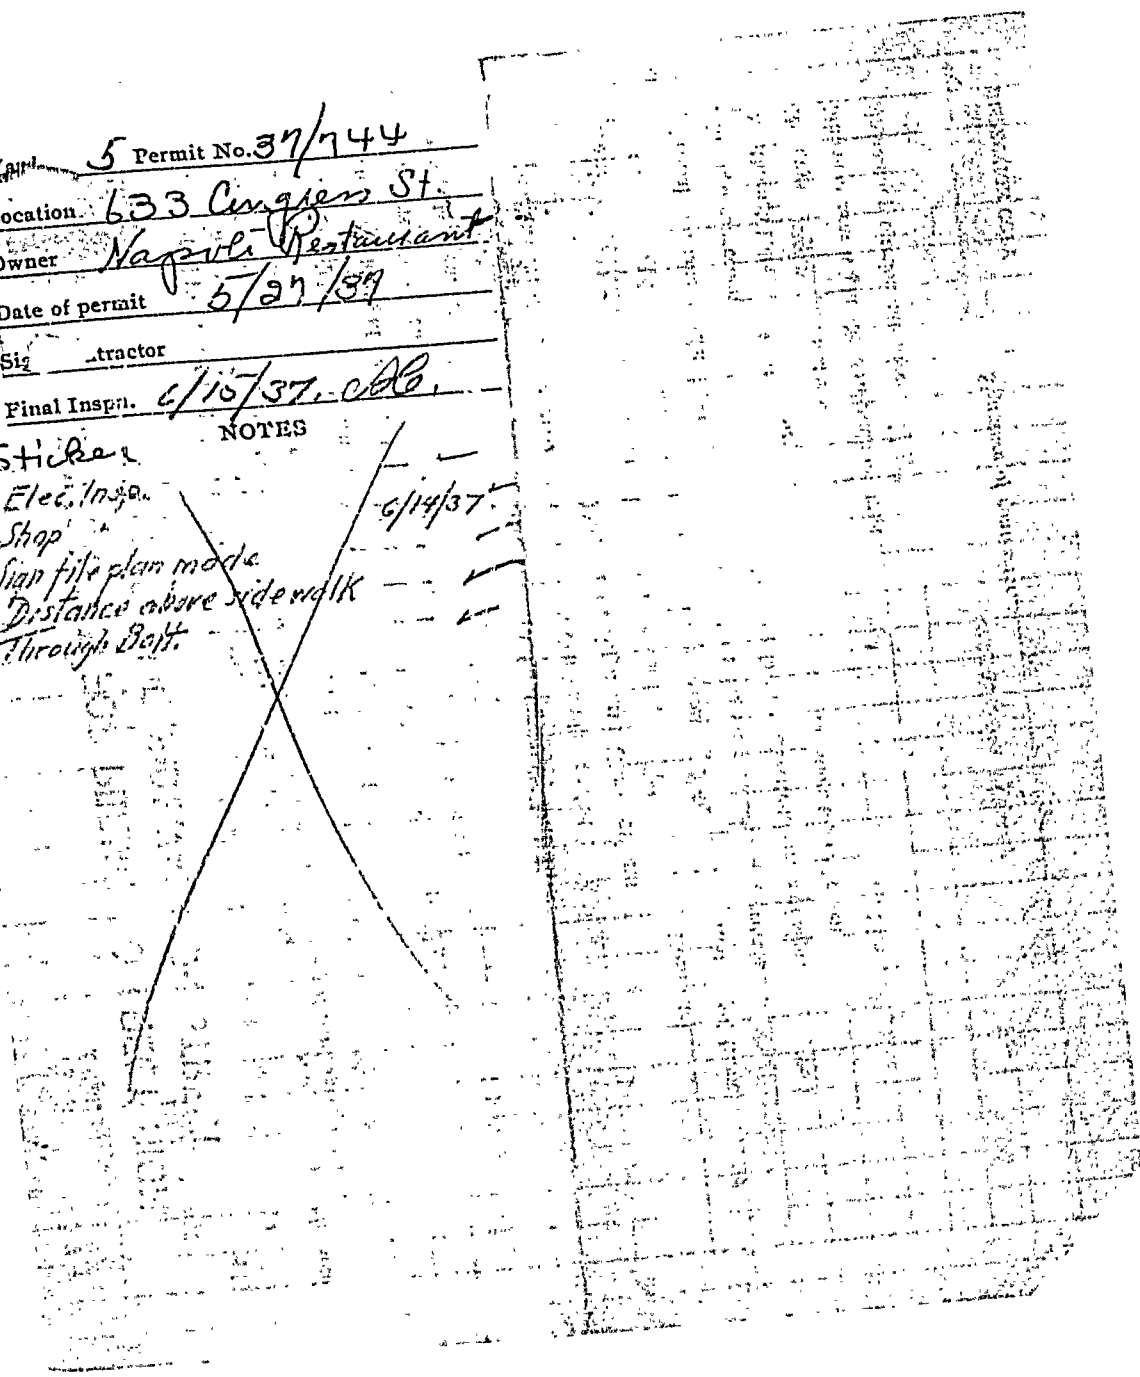 5 Permit No. 37/744
ocation 633 Congress St.
Owner Napoli Restaurant
Date of permit 5/27/37
Sig tractor
Final Inspn. 6/15/37.
NOTES
Sticker
Elec. Insp. 6/14/37
Shop "
Sign file plan made
Distance above sidewalk
Through Bolt.